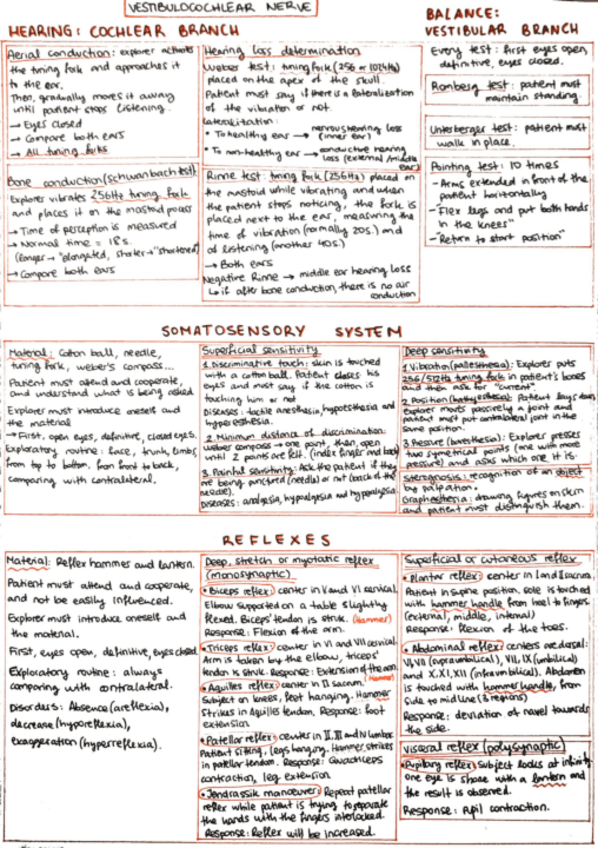 VESTIBULOCOCHLEAR NERVE
HEARING: COCHLEAR BRANCH
Aerial conduction: explorer activates
the tuning fork and approaches it
to the ear.
Then, gradually moves it away
until patient stops listening.
→ Eyes closed
→ Compare both ears
→ All tuning forks
Bone conduction (Schwanbach test)
Explorer vibrates 256Hz tuning fork
and places it on the mastoid process
→ Time of perception is measured
→ Normal time = 18s.
(longer → "elongated, shorter → "shortened)
→ Compare both ears
Hearing loss determination
Weber test: tuning fork (256 or 1024Hz)
placed on the apex of the skull.
Patient must say if there is a lateralization
of the vibration or not.
Lateralization:
• To healthy ear → nervous hearing loss
(inner ear)
• To non-healthy ear → conductive hearing
loss (external/middle
ear)
Rinne test: tuning fork (256Hz) placed on
the mastoid while vibrating and when
the patient stops noticing, the fork is
placed next to the ear, measuring the
time of vibration (normally 20s.) and
of listening (another 40s.)
→ Both ears
Negative Rinne → middle ear hearing loss
↳ if after bone conduction, there is no air
conduction
BALANCE:
VESTIBULAR BRANCH
Every test: first eyes open,
definitive, eyes closed.
Romberg test: patient must
maintain standing
Unterberger test: patient must
walk in place.
Pointing test: 10 times
- Arms extended in front of the
patient horitontally
- Flex legs and put both hands
in the knees"
- "Return to start position"
SOMATOSENSORY SYSTEM
Material: Coton ball, needle,
tuning fork, weber's compass...
Patient must attend and cooperate,
and understand what is being asked
Explorer must introduce oneself and
the material
→ First, open eyes, definitive, closed eyes.
Exploratory routine: face, trunk, limbs,
from top to bottom, from front to back,
comparing with contralateral.
Superficial sensitivity
1. Discriminative touch: skin is touched
with a cotton ball. Patient closes his
eyes and must say if the cotton is
touching him or not
Diseases: tactile anesthesia, hypoesthesia and
hyperesthesia.
2. Minimum distance of discrimination:
weber compass → one point, then, open
until 2 points are felt. (index finger and back)
3. Painful sensitivity: Ask the patient if they
are being punctured (needle) or not (back of the
needle).
Diseases: analgesia, hypoalgesia and hyperalgesia.
Deep sensitivity
1. Vibration (pallesthesia): Explorer puts
256/512Hz tuning fork in patient's bones
and then ask for "current"
2. Position (bathyesthesia): Patient lays down,
explorer moves passively a joint and
patient must put contralateral joint in the
same position.
3. Pressure (baresthesia): Explorer presses
two symetrical points (one with more
pressure) and asks which one it is.
Sterognosis: recognition of an object
by palpation.
Graphesthesia: drawing figures on skin
and patient must distinguish them.
REFLEXES
Material: Reflex hammers and lantern.
Patient must attend and cooperate,
and not be easily influenced.
Explorer must introduce oneself and
the material.
First, eyes open, definitive, eyes closed
Exploratory routine: always
comparing with contralateral.
Disorders: Absence (areflexia),
decrease (hyporeflexia),
exaggeration (hyperreflexia).
Deep, stretch or myotatic reflex
(monosynaptic)
• Biceps reflex: center in V and VI cervical.
Elbow supported on a table slightly
flexed. Biceps' tendon is struk. (Hammer)
Response: Flexion of the arm.
• Triceps reflex: center in VI and VII cervical
Arm is taken by the elbow, triceps'
tendon is struk. Response: Extension of the arm.
(Hammer)
• Aquilles reflex: center in II sacrum.
Subject on knees, feet hanging. Hammer
strikes in Aquilles tendon. Response: foot
extension
• Patellar reflex: centers in II, III and IV lumbar
Patient sitting, legs hanging. Hammer strikes
in patellar tendon. Response: Quadriceps
contraction, leg extension
• Jendrassik manoeuver: Repeat patellar
reflex while patient is trying to separate
the hands with the fingers interlocked.
Response: Reflex will be increased.
Superficial or cutaneous reflex
• Plantar reflex: center in I and II sacrum.
Patient in supine position, sole is touched
with hammer handle from heel to fingers
(external, middle, internal)
Response: flexion of the toes.
• Abdominal reflex: centers are dorsal:
VI, VII (supraumbilical), VII, IX (umbilical)
and X, XI, XII (infraumbilical). Abdomen
is touched with hammer handle, from
side to midline (3 regions)
Response: deviation of navel towards
the side.
Visceral reflex (polysynaptic)
• Pupillary reflex: Subject looks at infinity
one eye is shone with a lantern and
the result is observed.
Response: Pupil contraction.